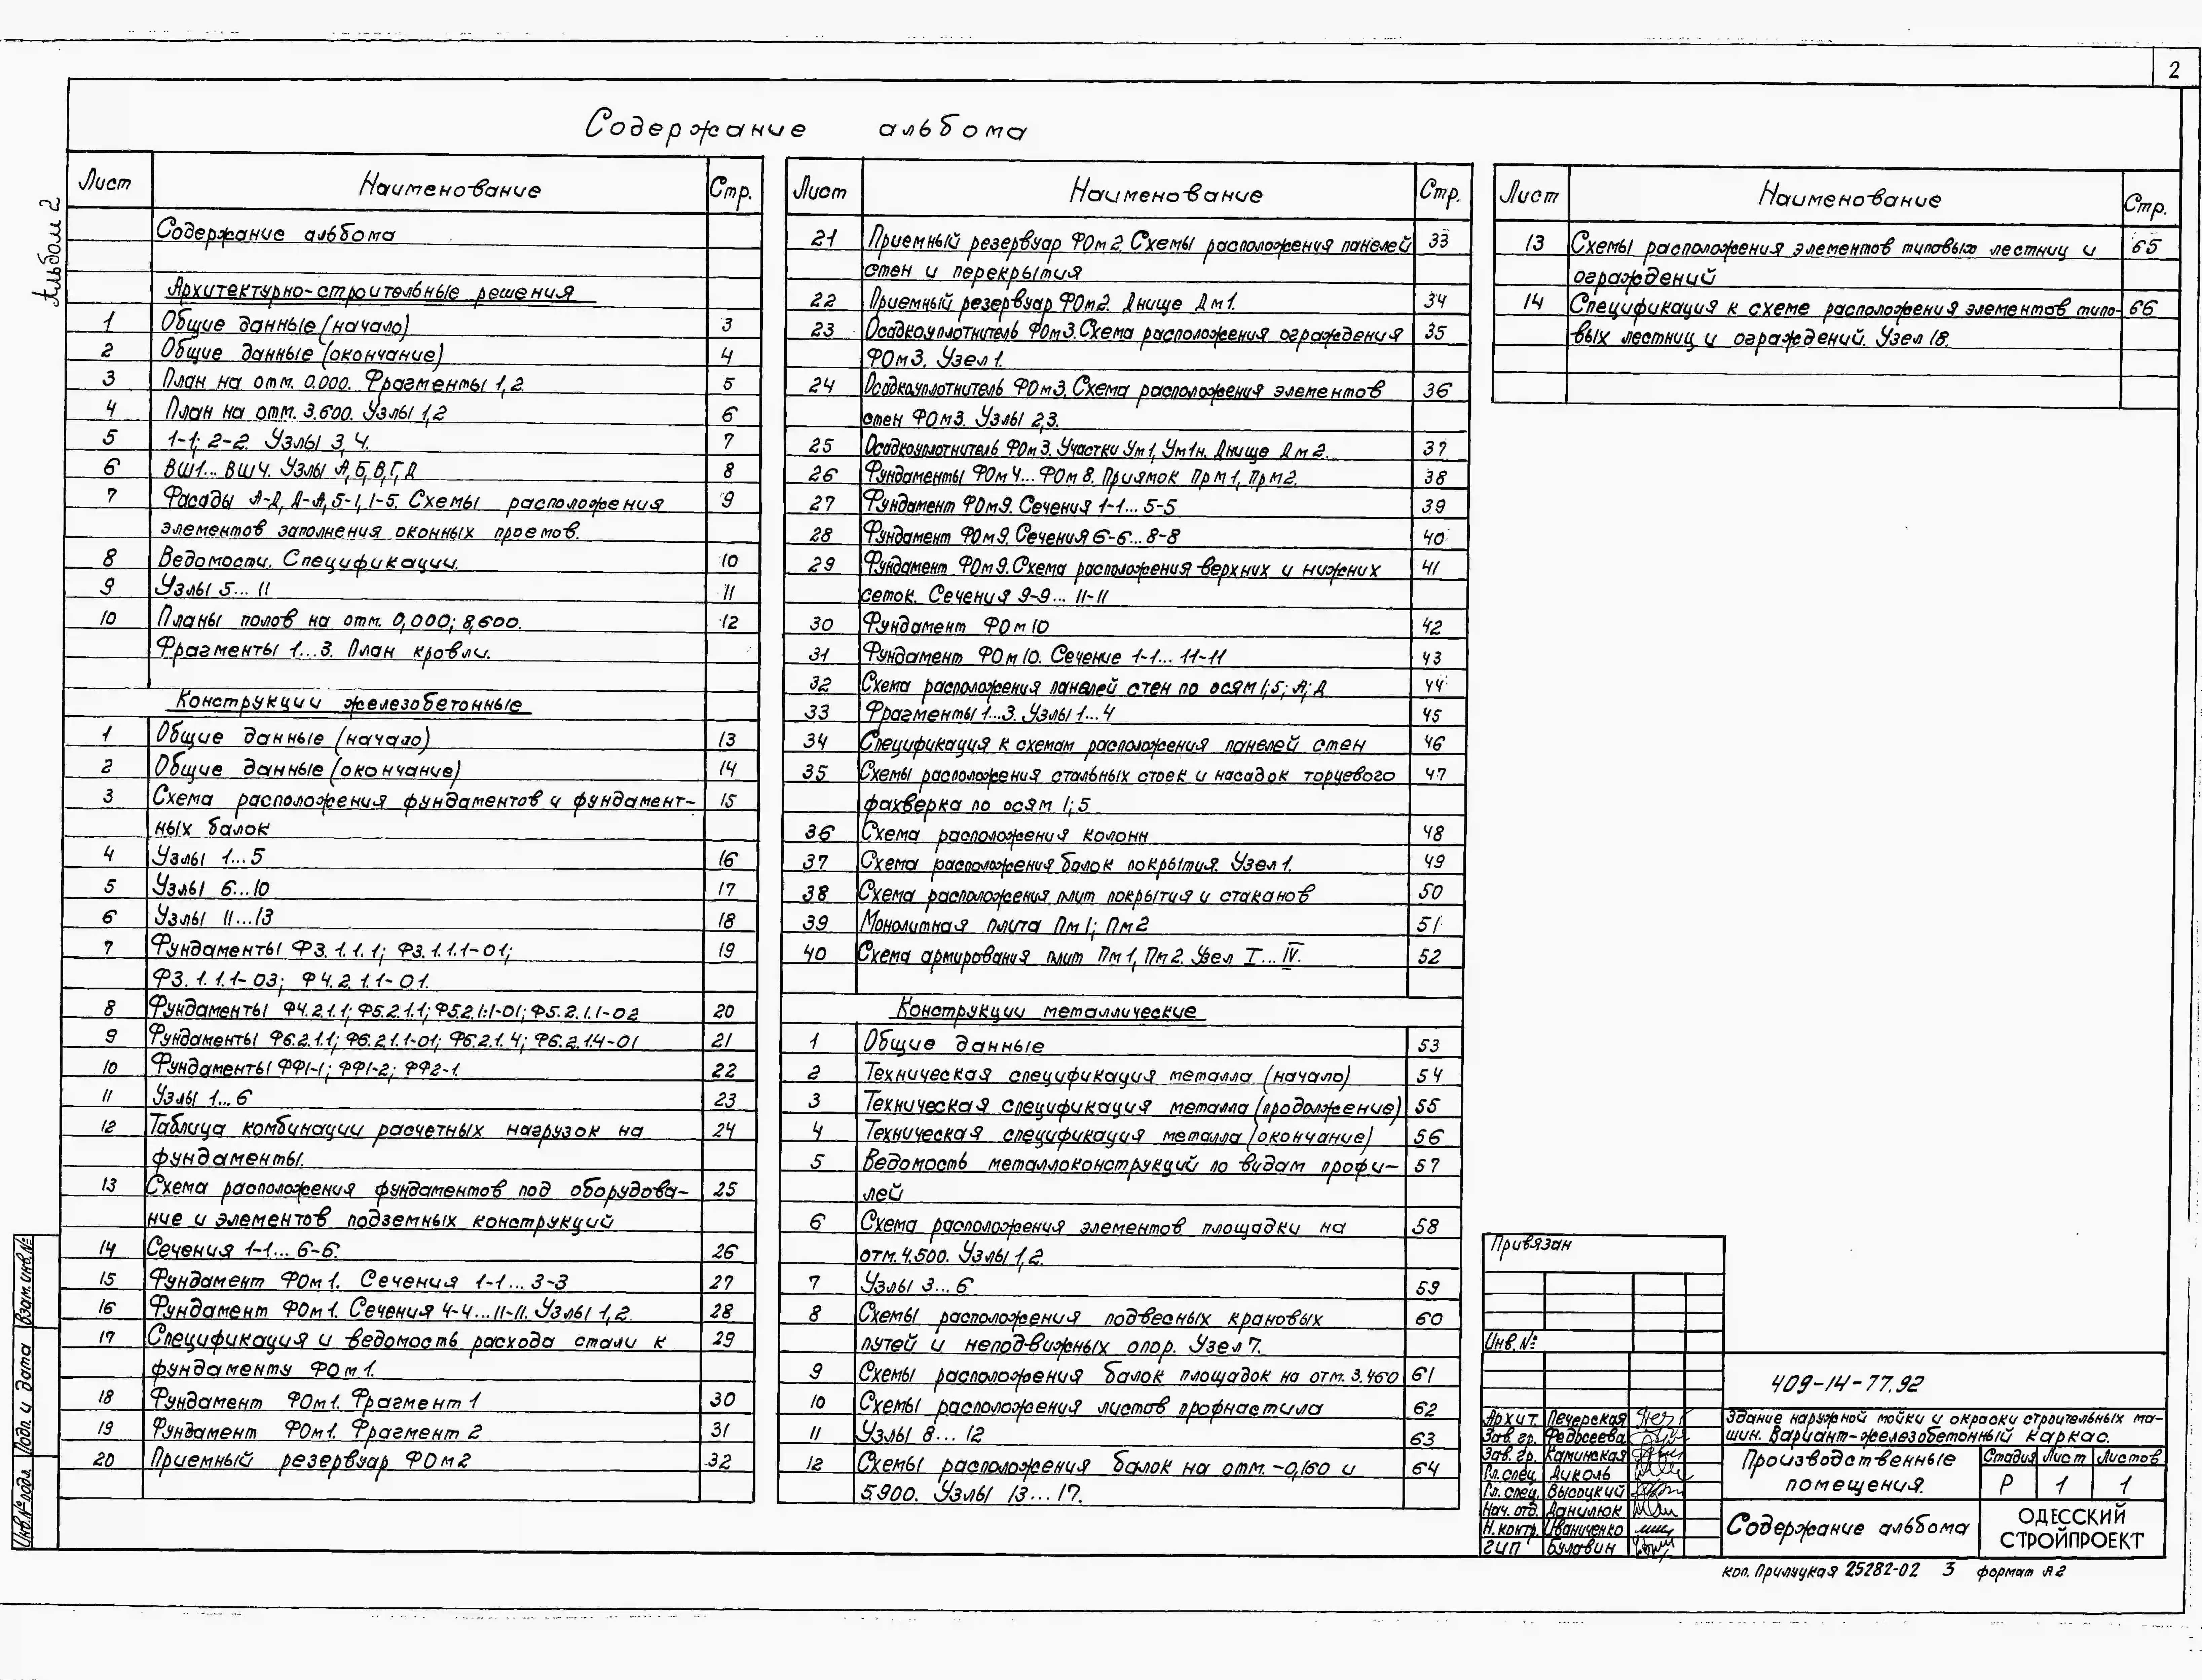 2
Содержание альбома
Альбом 2
Лист Наименование Стр.
Содержание альбома
Архитектурно-строительные решения
1 Общие данные (начало) 3
2 Общие данные (окончание) 4
3 План на отм. 0.000. Фрагменты 1,2. 5
4 План на отм. 3.600. Узлы 1,2 6
5 1-1; 2-2. Узлы 3,4. 7
6 ВШ1... ВШ4. Узлы А,Б,В,Г,Д 8
7 Фасады А-Д, Д-А, 5-1, 1-5. Схемы расположения 9
элементов заполнения оконных проемов.
8 Ведомости. Спецификации. 10
9 Узлы 5... 11 11
10 Планы полов на отм. 0,000; 8,600. 12
Фрагменты 1...3. План кровли.
Конструкции железобетонные
1 Общие данные (начало) 13
2 Общие данные (окончание) 14
3 Схема расположения фундаментов и фундамент- 15
ных балок
4 Узлы 1...5 16
5 Узлы 6...10 17
6 Узлы 11...13 18
7 Фундаменты Ф3.1.1.1; Ф3.1.1.1-01; 19
Ф3.1.1.1-03; Ф4.2.1.1-01.
8 Фундаменты Ф4.2.1.1; Ф5.2.1.1; Ф5.2.1.1-01; Ф5.2.1.1-02 20
9 Фундаменты Ф6.2.1.1; Ф6.2.1.1-01; Ф6.2.1.4; Ф6.2.1.4-01 21
10 Фундаменты ФФ1-1; ФФ1-2; ФФ2-1. 22
11 Узлы 1...6 23
12 Таблица комбинации расчетных нагрузок на 24
фундаменты.
13 Схема расположения фундаментов под оборудова- 25
ние и элементов подземных конструкций
14 Сечения 1-1... 6-6. 26
15 Фундамент ФОм1. Сечения 1-1... 3-3 27
16 Фундамент ФОм1. Сечения 4-4...11-11. Узлы 1,2. 28
17 Спецификация и ведомость расхода стали к 29
фундаменту ФОм1.
18 Фундамент ФОм1. Фрагмент 1 30
19 Фундамент ФОм1. Фрагмент 2 31
20 Приемный резервуар ФОм2 32
Лист Наименование Стр.
21 Приемный резервуар ФОм2. Схемы расположения панелей 33
стен и перекрытия
22 Приемный резервуар ФОм2. Днище Дм1. 34
23 Осадкоуплотнитель ФОм3. Схема расположения ограждения 35
ФОм3. Узел 1.
24 Осадкоуплотнитель ФОм3. Схема расположения элементов 36
стен ФОм3. Узлы 2,3.
25 Осадкоуплотнитель ФОм3. Участки Ум1, Ум1н. Днище Дм2. 37
26 Фундаменты ФОм4... ФОм8. Приямок Прм1, Прм2. 38
27 Фундамент ФОм9. Сечения 1-1... 5-5 39
28 Фундамент ФОм9. Сечения 6-6... 8-8 40
29 Фундамент ФОм9. Схема расположения верхних и нижних 41
сеток. Сечения 9-9... 11-11
30 Фундамент ФОм10 42
31 Фундамент ФОм10. Сечение 1-1... 11-11 43
32 Схема расположения панелей стен по осям 1;5; А; Д 44
33 Фрагменты 1...3. Узлы 1...4 45
34 Спецификация к схемам расположения панелей стен 46
35 Схемы расположения стальных стоек и насадок торцевого 47
фахверка по осям 1; 5
36 Схема расположения колонн 48
37 Схема расположения балок покрытия. Узел 1. 49
38 Схема расположения плит покрытия и стаканов 50
39 Монолитная плита Пм1; Пм2 51
40 Схема армирования плит Пм1, Пм2. Узел I... IV. 52
Конструкции металлические
1 Общие данные 53
2 Техническая спецификация металла (начало) 54
3 Техническая спецификация металла (продолжение) 55
4 Техническая спецификация металла (окончание) 56
5 Ведомость металлоконструкций по видам профи- 57
лей
6 Схема расположения элементов площадки на 58
отм. 4.500. Узлы 1,2.
7 Узлы 3...6 59
8 Схемы расположения подвесных крановых 60
путей и неподвижных опор. Узел 7.
9 Схемы расположения балок площадок на отм. 3.460 61
10 Схемы расположения листов профнастила 62
11 Узлы 8... 12 63
12 Схемы расположения балок на отм. -0,160 и 64
5.900. Узлы 13...17.
Лист Наименование Стр.
13 Схемы расположения элементов типовых лестниц и 65
ограждений
14 Спецификация к схеме расположения элементов типо- 66
вых лестниц и ограждений. Узел 18.
Привязан
Инв.№
409-14-77.92
Здание наружной мойки и окраски строительных ма-
шин. Вариант-железобетонный каркас.
Архит. Печерская
Зав. гр. Федосеева
Зав. гр. Каминская
Гл. спец. Диколь
Гл. спец. Высоцкий
Нач. отд. Данилюк
Н. контр. Иваниченко
ГИП Булавин
Производственные
помещения.
Стадия Лист Листов
Р 1 1
Содержание альбома
ОДЕССКИЙ
СТРОЙПРОЕКТ
коп. Прилуцкая 25282-02 3 формат А2
Взам. инв.№
Подп. и дата
Инв.№ подл.